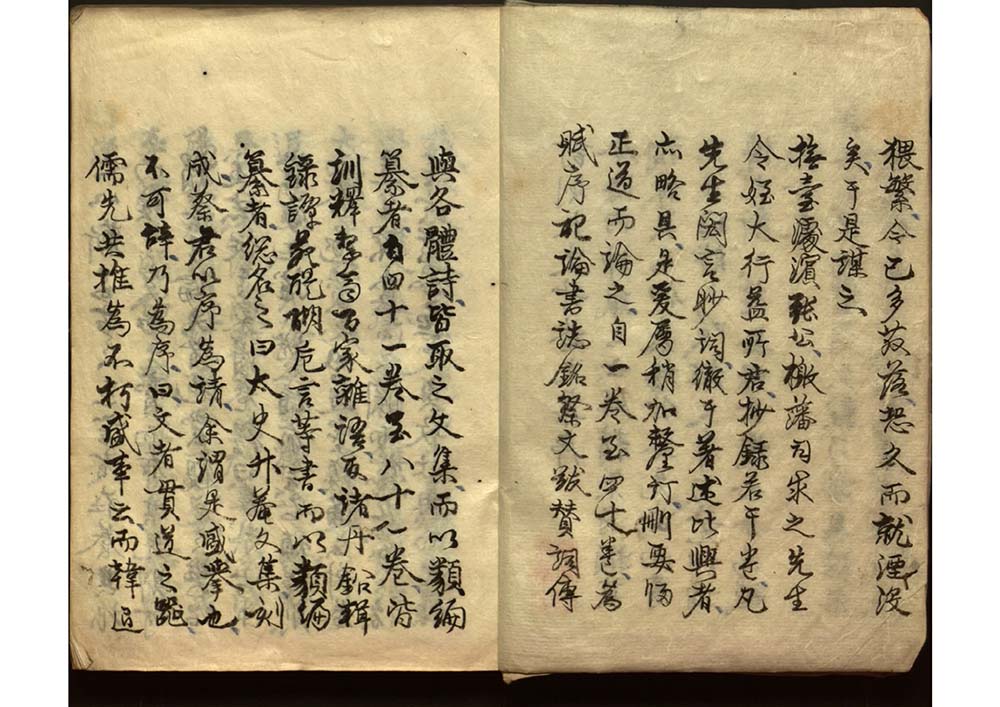 猥繁令已多散落恐久而就湮沒
矣于是謀之
撫臺濛濱張公檄藩司求之先生
令姪大行益所君抄録若干卷凡
先生閎言眇詞徹于著述比興者
亦略具是爰屬稍加釐訂刪要歸
正道而論之自一卷至四十卷爲
賦序記論書誌銘祭文跋贊詞傳
與各體詩皆取之文集而以類編
纂者自四十一卷至八十一卷皆
訓釋百家雜語及諸丹鉛輯
録譚苑醍醐卮言等書而以類編
纂者總名之曰太史升菴文集刻
成蔡君以序爲請余謂是盛舉也
不可辞乃爲序曰文者貫道之
儒先共推爲不朽盛事云而韓